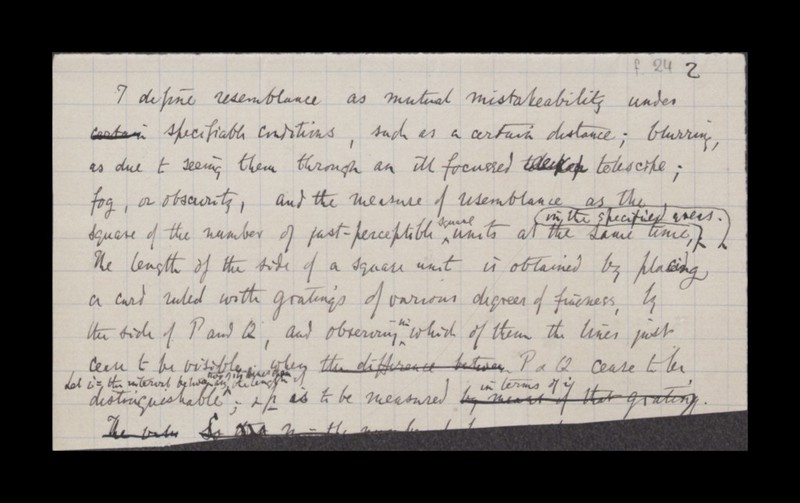 f. 24 2
I define resemblance as mutual mistakeability under
certain specifiable conditions, such as a certain distance; blurring,
as due to seeing them through an ill focussed telescope;
fog, or obscurity, and the measure of resemblance as the
in the specified areas.
square of the number of just-perceptible square units at the same time,
The length of the side of a square unit is obtained by placing
a card ruled with gratings of various degrees of fineness, by
the side of P and Q, and observing in which of them the lines just
cease to be visible when the difference between P & Q cease to be
Let i = the interval between the length of
in terms of i
distinguishable; is to be measured by means of that grating.
The the number